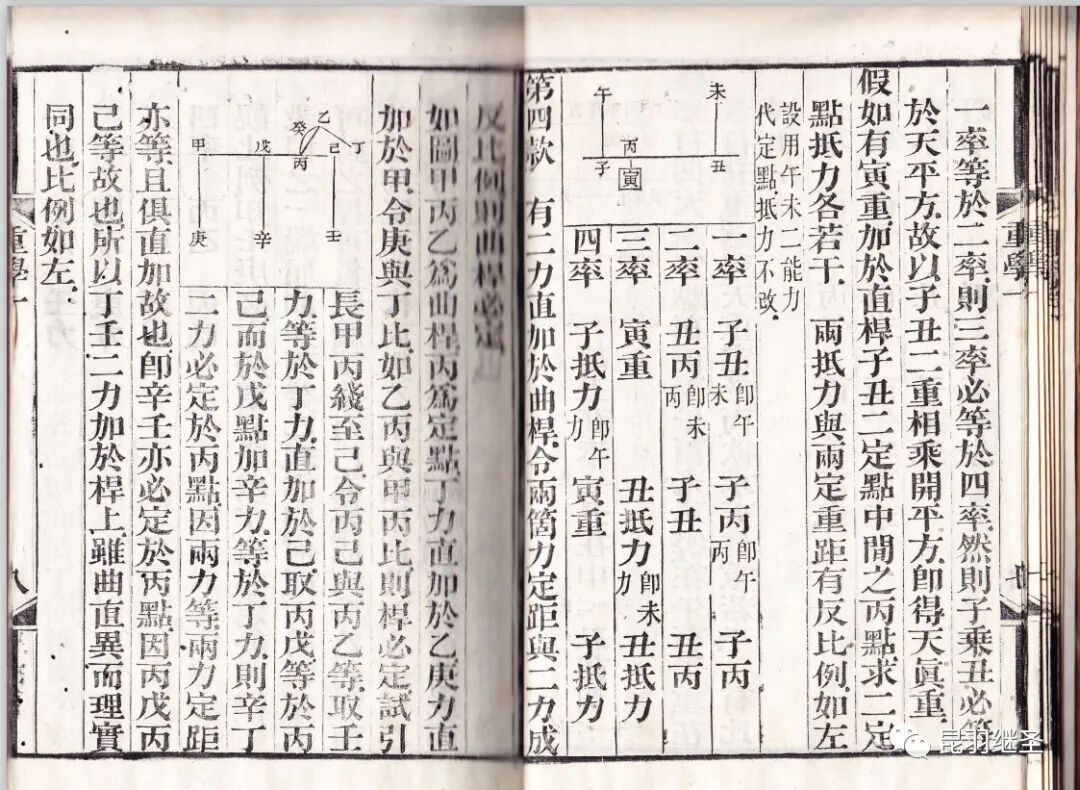 一率等於二率則三率必等於四率然則子乘丑必等
於天平方故以子丑二重相乘開平方卽得天眞重
假如有寅重加於直桿子丑二定點中間之丙點求二定
點抵力各若干 兩抵力與兩定重距有反比例如左
設用午未二能力
代定點抵力不改
未
午
丙
寅
子
丑
一率 子丑卽午未 子丙卽午丙 子丙
二率 丑丙卽未丙 子丑 丑丙
三率 寅重 丑抵力卽未力 丑抵力
四率 子抵力卽午力 寅重 子抵力
第四款 有二力直加於曲桿令兩箇力定距與二力成
反比例則曲桿必定
如圖甲丙乙爲曲桿丙爲定點丁力直加於乙庚力直
加於甲令庚與丁比如乙丙與甲丙比則桿必定試引
乙
癸
甲
戊
丙
己
丁
庚
辛
壬
長甲丙綫至己令丙己與丙乙等取壬
力等於丁力直加於己取丙戊等於丙
己而於戊點加辛力等於丁力則辛丁
二力必定於丙點因兩力等兩力定距
亦等且俱直加故也卽辛壬亦必定於丙點因丙戊丙
己等故也所以丁壬二力加於桿上雖曲直異而理實
同也比例如左
重學一
八
昆羽继圣